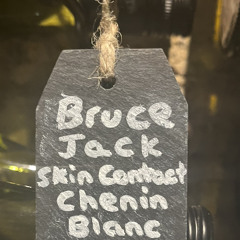 Bruce
Jack
Skin Contact
Chenin
Blanc